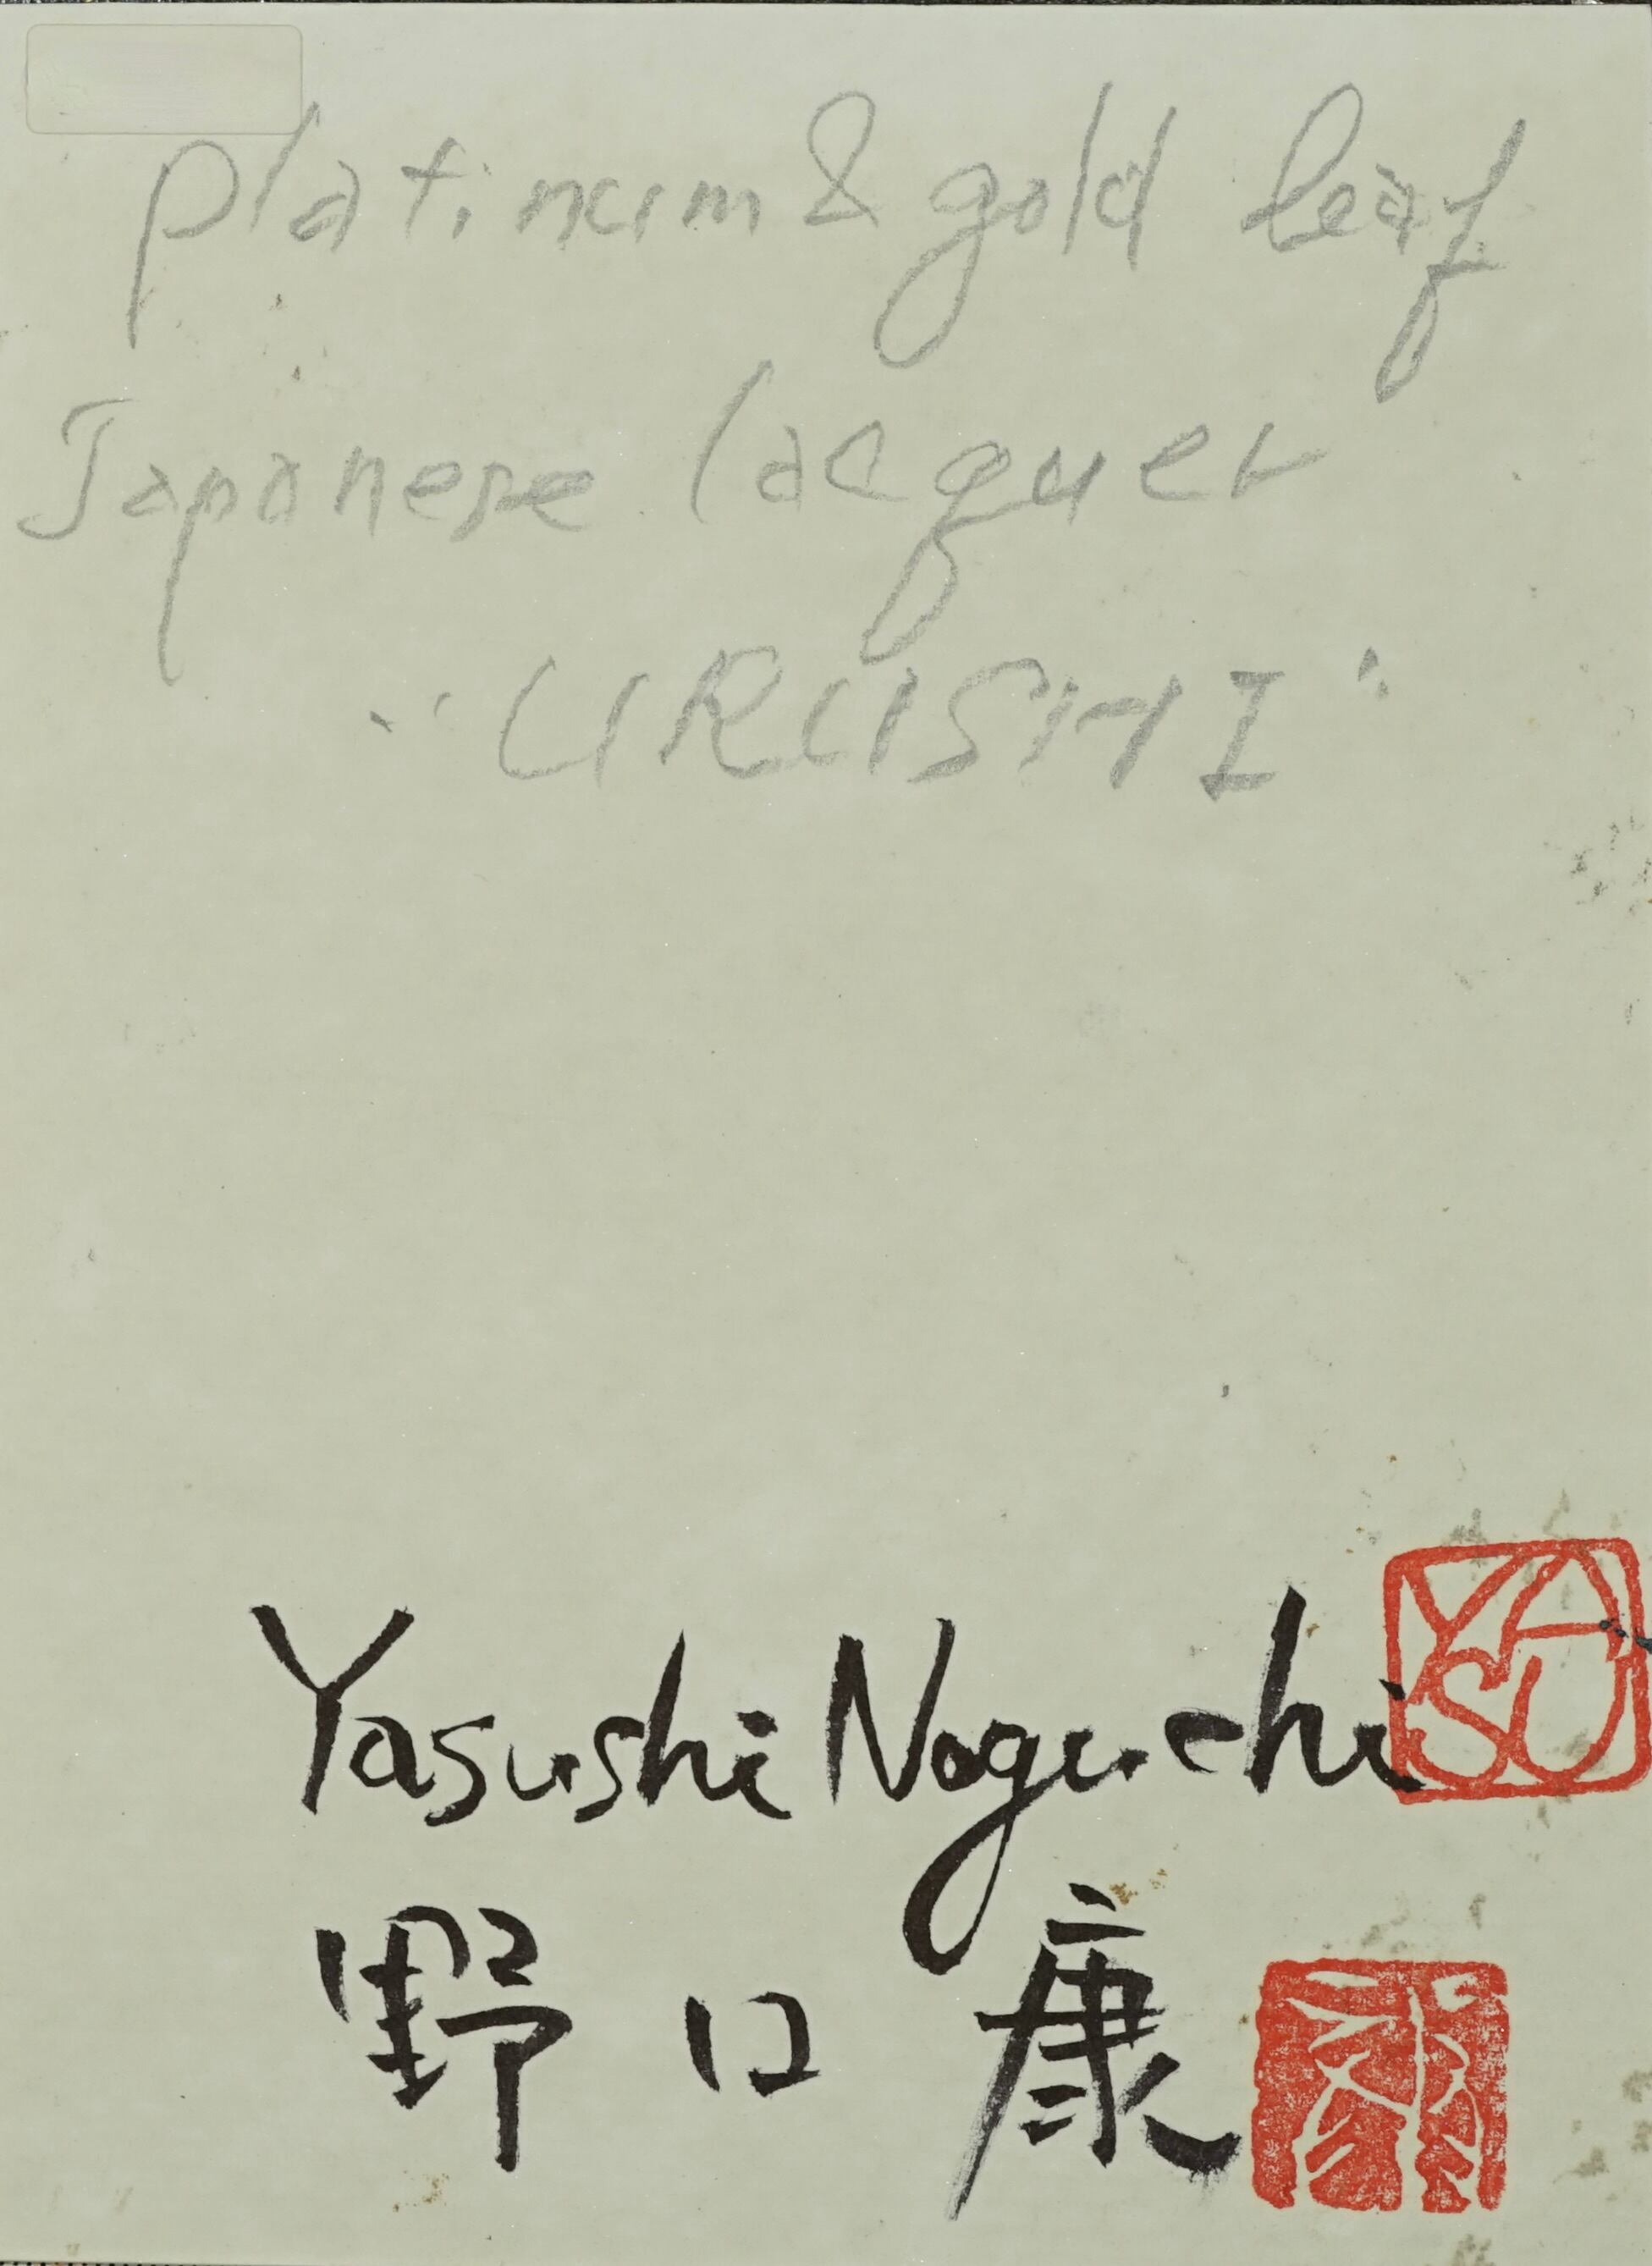 platinum & gold leaf
Japanese lacquer
"URUSHI"
YA
SU
Yasushi Noguchi
野口 康